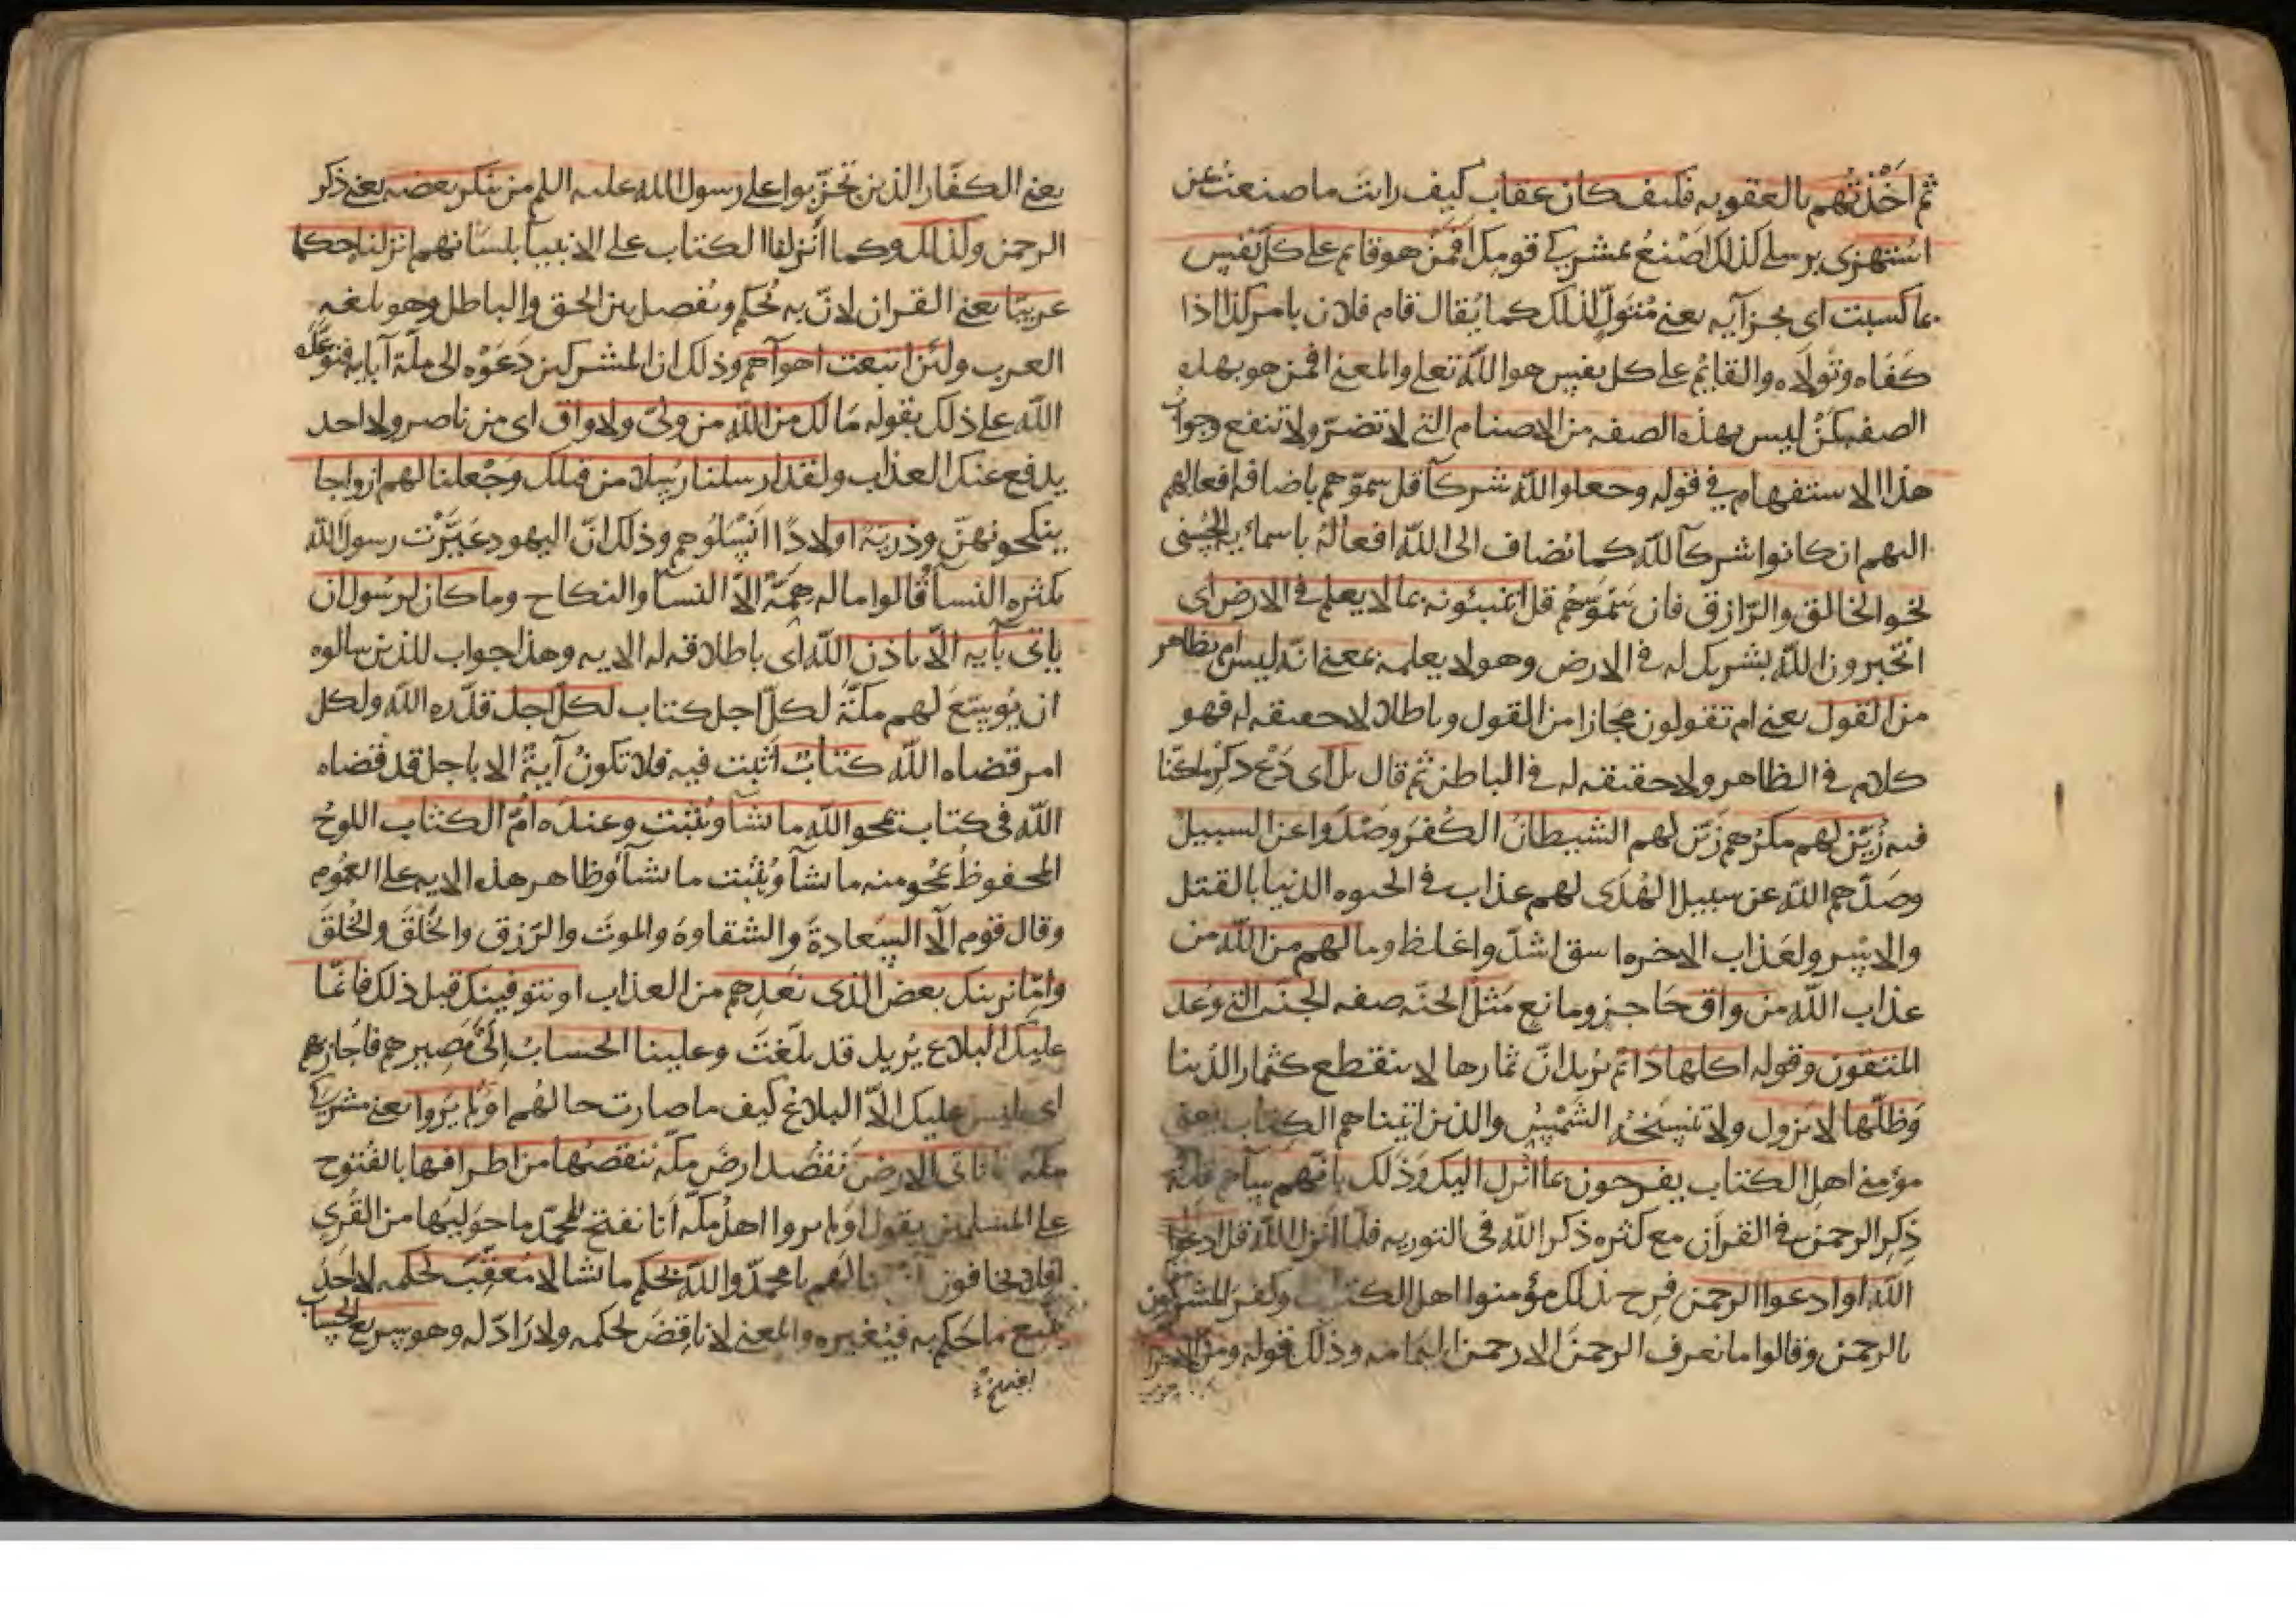 ثم اخذتهم بالعقوبه فكيف كان عقاب كيف رايت ما صنعت بمن
استهزى برسلي كذلك اصنع بمشركي قومك افمن هو قايم على كل نفس
بما كسبت اى بجزآيه يعنى متول لذلك كما يقال قام فلان بامر كذا اذا
كفاه وتولاه والقايم على كل نفس هو الله تعلى والمعنى افمن هو بهذه
الصفه كمن ليس بهذه الصفه من الاصنام التي لا تضر ولا تنفع وجواب
هذا الاستفهام في قوله وجعلوا لله شركآ قل سموهم باضافه افعالهم
اليهم ان كانوا شركآ لله كما تضاف الى الله افعاله باسمائه الحسنى
نحو الخالق والرازق فان سموهم قل اتنبئونه بما لا يعلم في الارض اى
اتخبرون الله بشريك له في الارض وهو لا يعلمه بمعنى انه ليس ام بظاهر
من القول يعنى ام تقولون مجازا من القول وباطلا لا حقيقه له فهو
كلام في الظاهر ولا حقيقه له في الباطن ثم قال بل اى دع ذكر ما كنا
فيه زين لهم مكرهم زين لهم الشيطان الكفر وصدوا عن السبيل
وصدهم الله عن سبيل الهدى لهم عذاب في الحيوه الدنيا بالقتل
والاسر ولعذاب الاخره اسق اشد واغلظ وما لهم من الله من
عذاب الله من واق حاجز ومانع مثل الجنه صفه الجنه التي وعد
المتقون وقوله اكلها دائم يريد ان ثمارها لا ينقطع كثمار الدنيا
وظلها لا يزول ولا تنسخه الشمس والذين اتيناهم الكتاب يعنى
مؤمنى اهل الكتاب يفرحون بما انزل اليك وذلك بانهم سآهم قله
ذكر الرحمن في القرآن مع كثره ذكر الله في التوريه فلما انزل الله قل ادعوا
الله او ادعوا الرحمن فرح بذلك مؤمنوا اهل الكتاب وكفر المشركون
بالرحمن وقالوا ما نعرف الرحمن الا رحمن اليمامه وذلك قوله ومن الاحزاب
يعنى الكفار الذين تحزبوا على رسول الله عليه السلم من ينكر بعضه يعنى ذكر
الرحمن وكذلك وكما انزلنا الكتاب على الانبيآ بلسانهم انزلناه حكما
عربيا يعنى القران لان به يحكم ويفصل بين الحق والباطل وهو بلغه
العرب ولئن اتبعت اهوآهم وذلك ان المشركين دعوه الى ملة آبايه فتوعده
الله على ذلك بقوله ما لك من الله من ولى ولا واق اى من ناصر ولا احد
يدفع عنك العذاب ولقد ارسلنا رسلا من قبلك وجعلنا لهم ازواجا
ينكحونهن وذرية اولادا انسلوهم وذلك ان اليهود عيرت رسول الله
بكثره النسآ قالوا ما له همة الا النسآ والنكاح وما كان لرسول ان
ياتى بآيه الا باذن الله اى باطلاقه له الايه وهذا جواب للذين سالوه
ان يوسع لهم مكة لكل اجل كتاب لكل اجل قدره الله ولكل
امر قضاه الله كتاب اثبت فيه فلا تكون آية الا باجل قد قضاه
الله في كتاب يمحو الله ما يشآ ويثبت وعنده ام الكتاب اللوح
المحفوظ يمحو منه ما يشآ ويثبت ما يشآ وظاهر هذه الايه على العموم
وقال قوم الا السعادة والشقاوه والموت والرزق والخلق والخلق
واما نرينك بعض الذى نعدهم من العذاب او نتوفينك قبل ذلك فانما
عليك البلاغ يريد قد بلغت وعلينا الحساب الى مصيرهم فاجازيهم
اى ليس عليك الا البلاغ كيف ما صارت حالهم اولم يروا يعنى مشركى
مكه انا ناتى الارض نقصد ارض مكه ننقصها من اطرافها بالفتوح
على المسلمين يقول اولم يروا اهل مكه انا نفتح لمحمد ما حوليها من القرى
افلا يخافون ان تنالهم يا محمد والله يحكم ما يشا لا معقب لحكمه لا احد
يتبع ما حكم به فيغيره والمعنى لا ناقض لحكمه ولا راد له وهو سريع الحساب